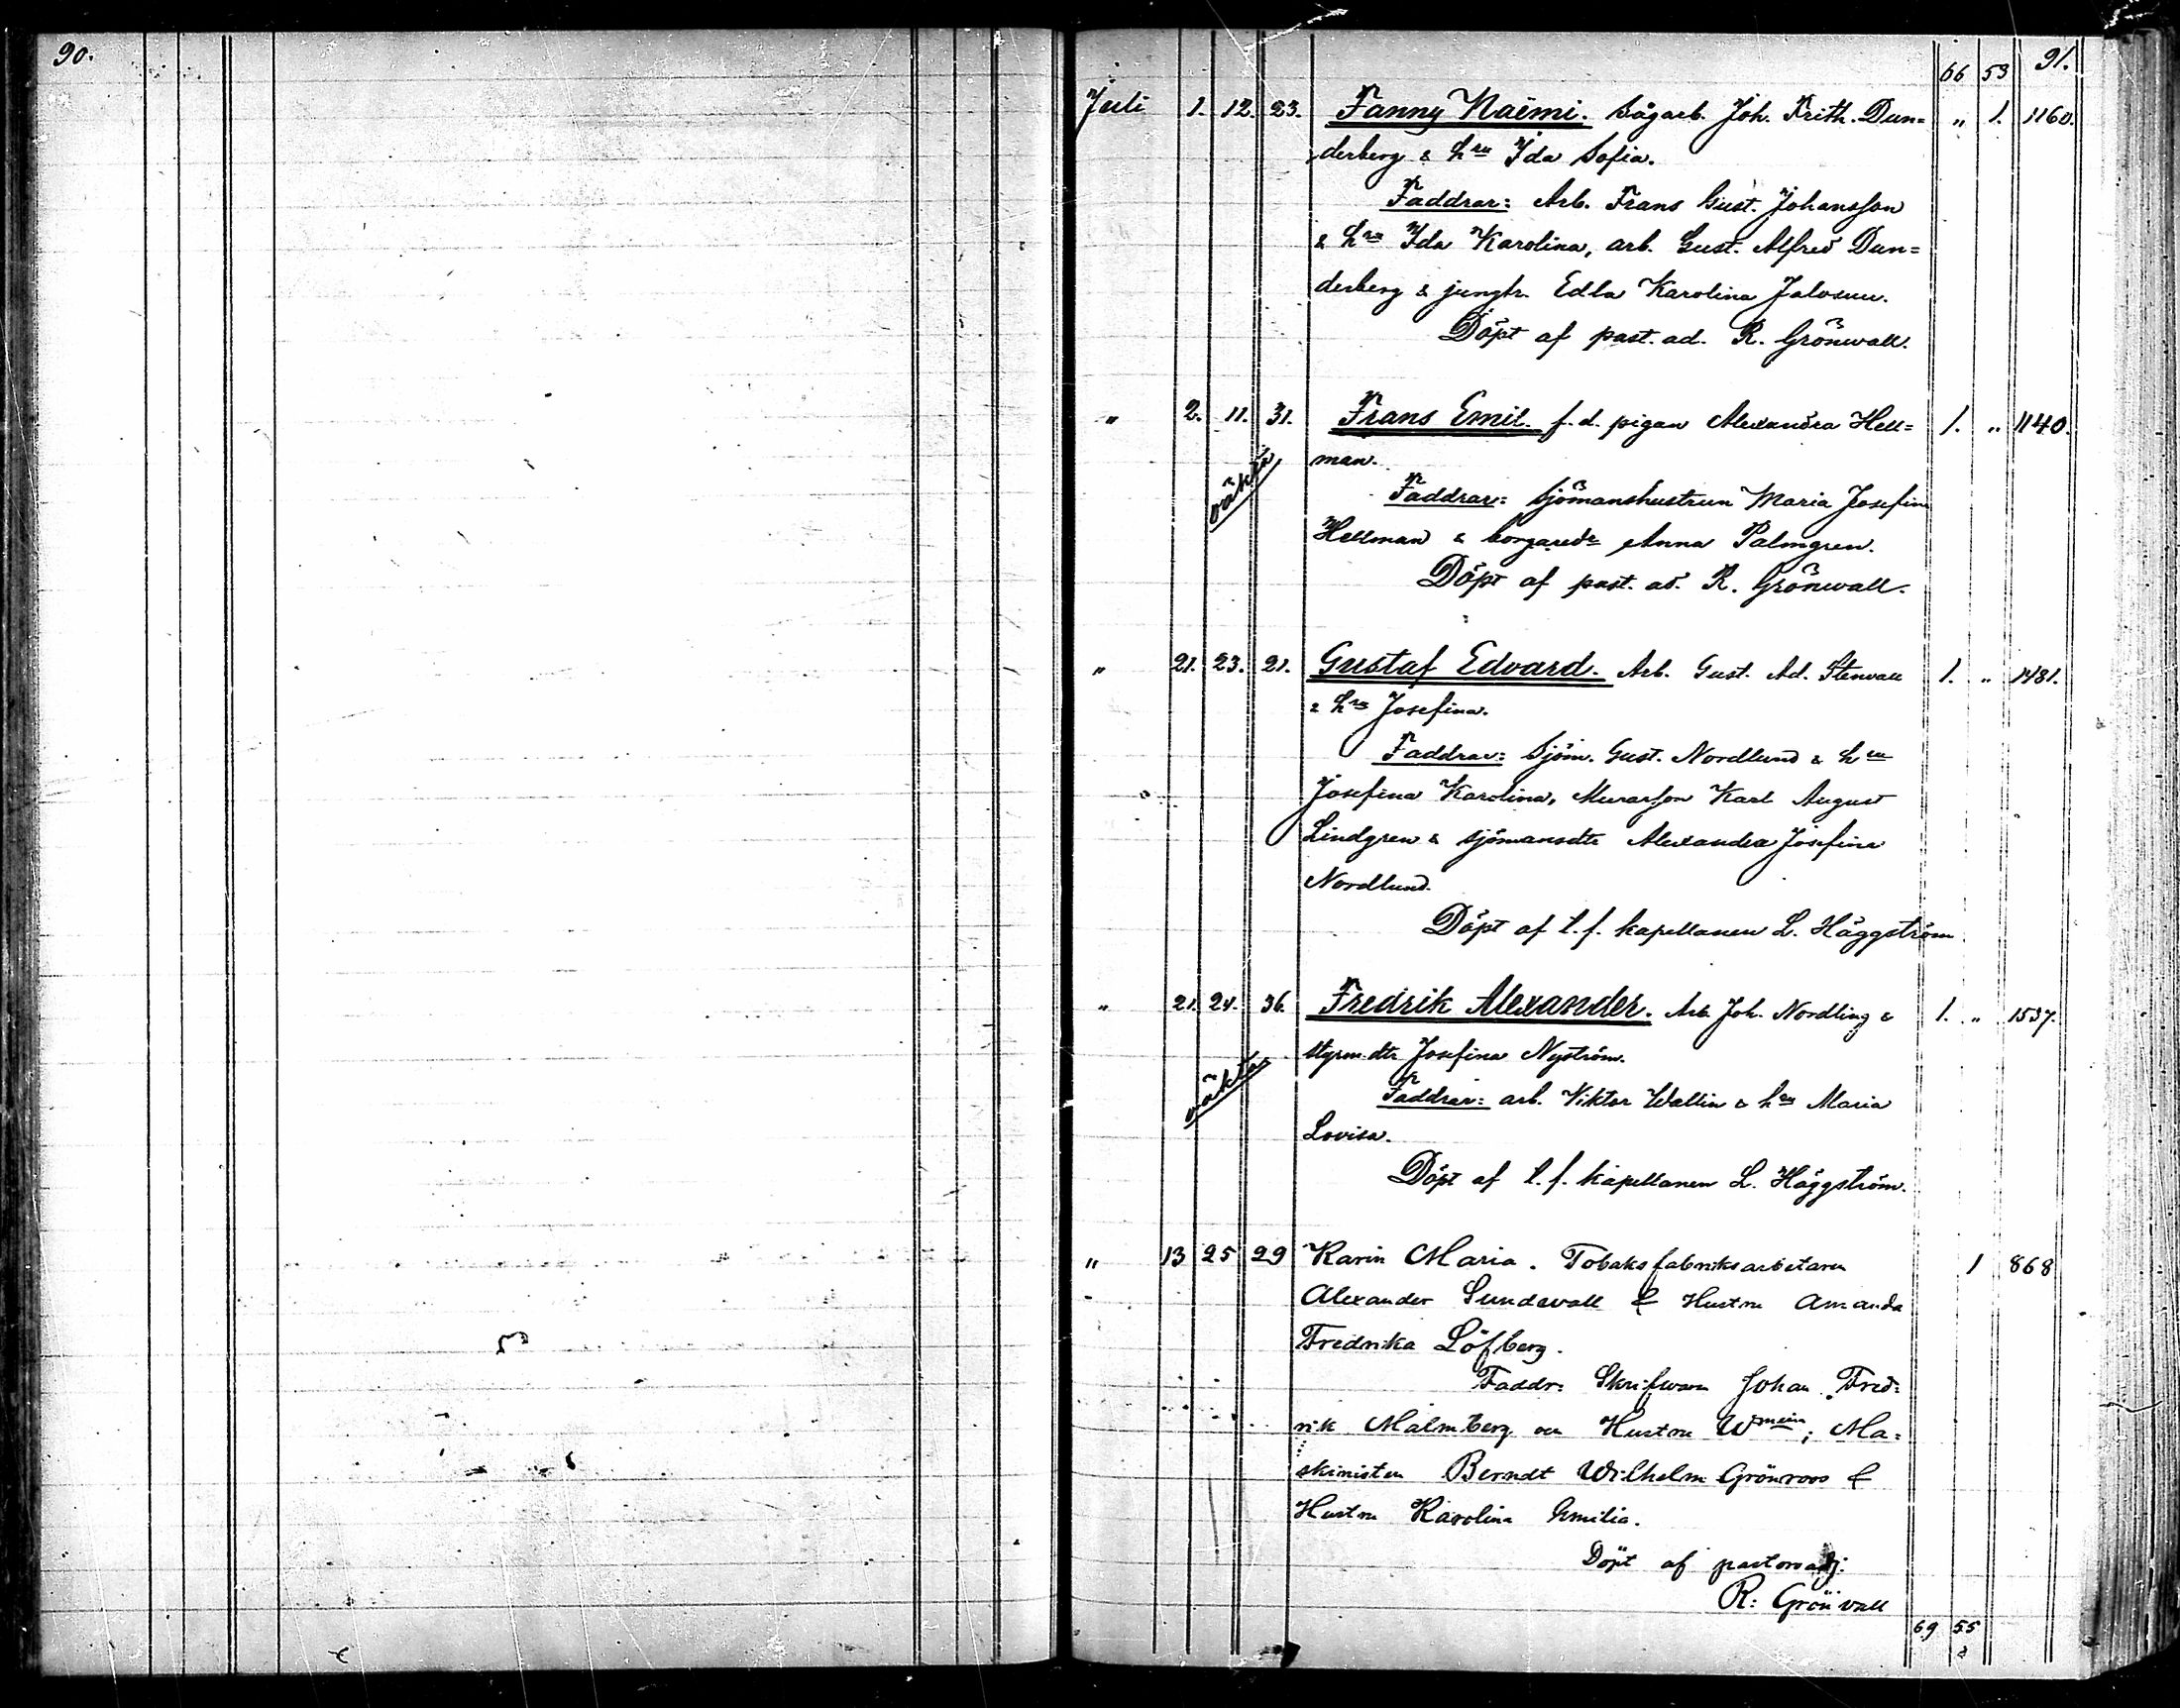 90.
66 53 91.
Juli 1. 12. 23. Fanny Naëmi. Sågarb. Joh. Frith. Dun= „ 1. 1160.
derberg & hru Ida Sofia.
Faddrar: Arb. Frans Gust. Johansson
& hru Ida Karolina, arb. Gust. Alfred Dun=
derberg & jungfr. Edla Karolina
Döpt af past. ad. R. Grönwall.
„ 2. 11. 31. Frans Emil. f.d. pigan Alexandra Hell= 1. „ 1140.
man.
oäkta
Faddrar: Sjömanshustrun Maria Josefina
Hellman & borgaredr Anna Palmgren.
Döpt af past. ad. R. Grönwall.
„ 21. 23. 21. Gustaf Edvard. Arb. Gust. Ad. Stenvall 1. „ 1481.
& hru Josefina.
Faddrar: Sjöm. Gust. Nordlund & hru
Josefina Karolina, Murarson Karl August
Lindgren & sjömansdtr Alexandra Josefina
Nordlund.
Döpt af t.f. kapellanen L. Häggström.
„ 21. 24. 36. Fredrik Alexander. Arb. Joh. Nordling & 1. „ 1537.
styrm.dtr Josefina Nyström.
oäkta
Faddrar: arb. Viktor Wallin & hru Maria
Lovisa.
Döpt af t.f. kapellanen L. Häggström.
„ 13 25 29 Karin Maria. Tobaksfabriksarbetaren 1 868
Alexander Sundevall & Hustru Amanda
Fredrika Löfberg.
Faddr: Skrifvaren Johan Fred=
rik Malmberg och Hustru Wmina; Ma=
skinisten Berndt Wilhelm Grönroos &
Hustru Karolina Emilia.
Döpt af pastorsadj.
R. Grönvall
69 55